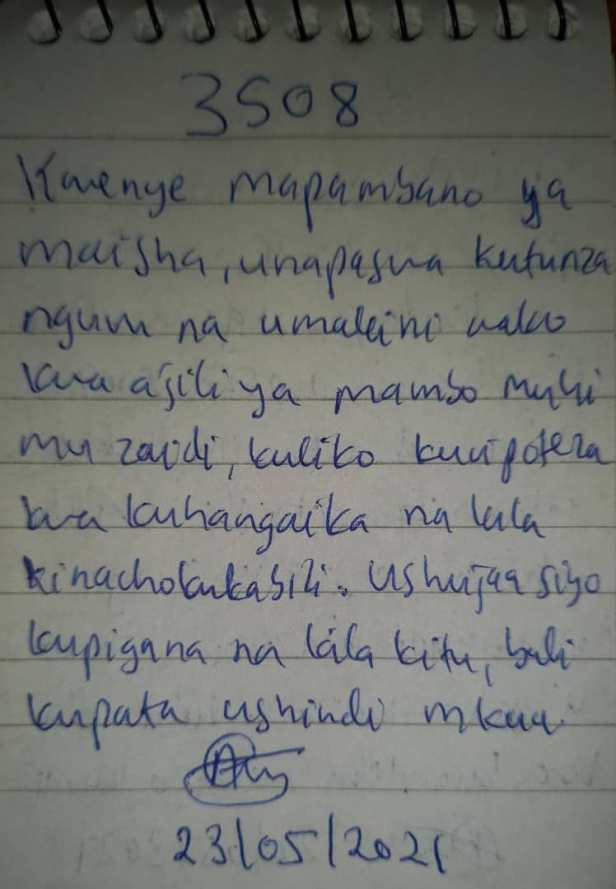 3508
Kwenye mapambano ya
maisha, unapaswa kutunza
nguvu na umakini wako
kwa ajili ya mambo muhi
mu zaidi, kuliko kuvipoteza
kwa kuhangaika na kila
kinachokukabili. Ushujaa siyo
kupigana na kila kitu, bali
kupata ushindi mkuu.
23/05/2021